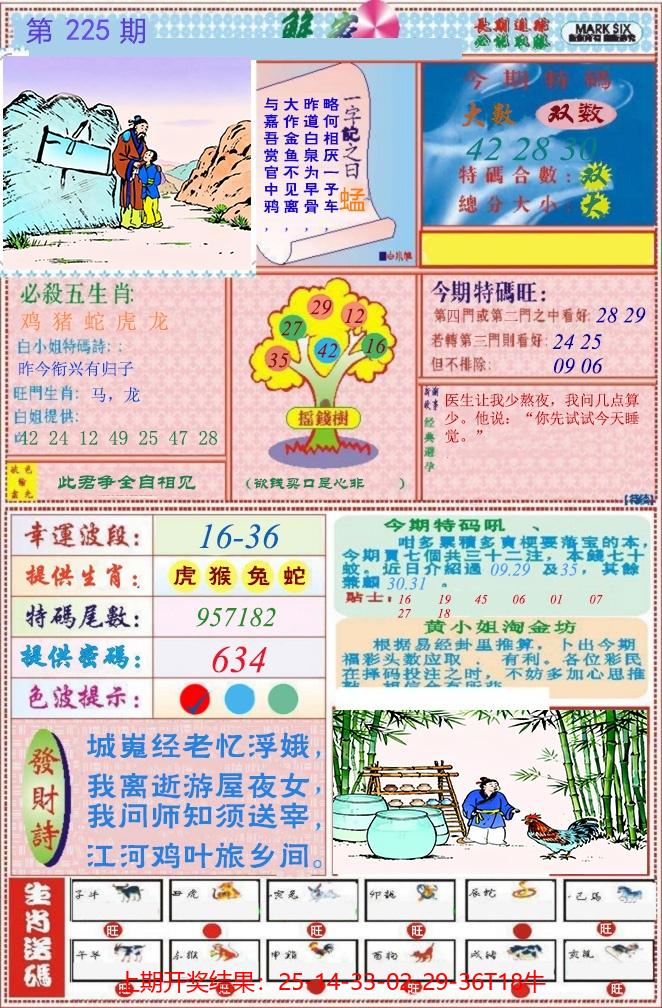 第 225 期
長期連綿
必認取勝
MARK SIX
一字記之日
蜢
略何相厌一子车
昨道白泉为早骨，
大作金鱼不见离，
与嘉吾赏官中鸦，
今期特碼
大數 双數
42 28 30
特碼合數：双
總分大小：大
必殺五生肖
鸡 猪 蛇 虎 龙
白小姐特碼詩：：
昨今衔兴有归子
旺門生肖： 马，龙
白姐提供：
42 24 12 49 25 47 28
29
12
27
42
16
35
摇錢樹
今期特碼旺：
第四門或第二門之中看好 28 29
若轉第三門則看好： 24 25
但不排除： 09 06
經典避孕
医生让我少熬夜，我问几点算
少。他说：“你先试试今天睡
觉。”
此君争全自相见
（欲钱买口是心非 ）
幸運波段： 16-36
提供生肖： 虎 猴 兔 蛇
特碼尾數： 957182
提供密碼： 634
色波提示：
今期特码吼 、
咁多累積多寶梗要落宝的本，
今期買七個共三十二注，本錢七十
蚊。近日介紹過 09.29 及35，其餘
兼顧 30.31 。
貼士： 16 19 45 06 01 07
27 18
黄小姐淘金坊
根据易经卦里推算，卜出今期
福彩头数应取 、有利。各位彩民
在择码投注之时，不妨多加心思推
發財詩
城嵬经老忆浮娥，
我离逝游屋夜女，
我问师知须送宰，
江河鸡叶旅乡间。
生肖送碼
子牛 丑虎 寅兔 卯龍 辰蛇 己馬
旺 旺 旺
午羊 未猴 申鷄 酉狗 戌猪 亥鼠
上期开奖结果：25-14-33-02-29-36T18牛